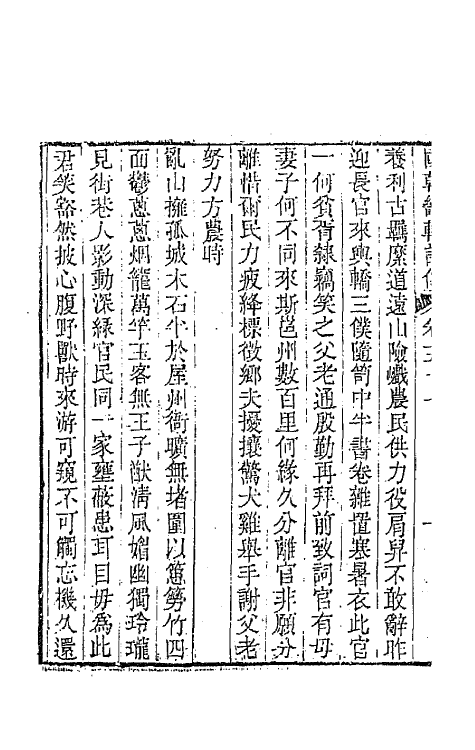 養利古羈縻道遠山險巇農民供力役肩舁不敢辭昨
迎長官來輿轎三僕隨笥中半書卷雜置寒暑衣此官
一何貧胥隸竊笑之父老通殷勤再拜前致詞官有母
妻子何不同來斯邕州數百里何緣久分離官非願分
離惜爾民力疲絳標徵鄉夫擾攘驚犬雞舉手謝父老
努力方農時
亂山擁孤城木石半於屋州衙曠無堵圍以䓗簩竹四
面鬱蔥蔥烟籠萬竿玉客無王子猷清風媚幽獨玲瓏
見街巷人影動深綠官民同一家壅蔽患耳目毋為此
君笑豁然披心腹野獸時來游可窺不可觸忘機久還